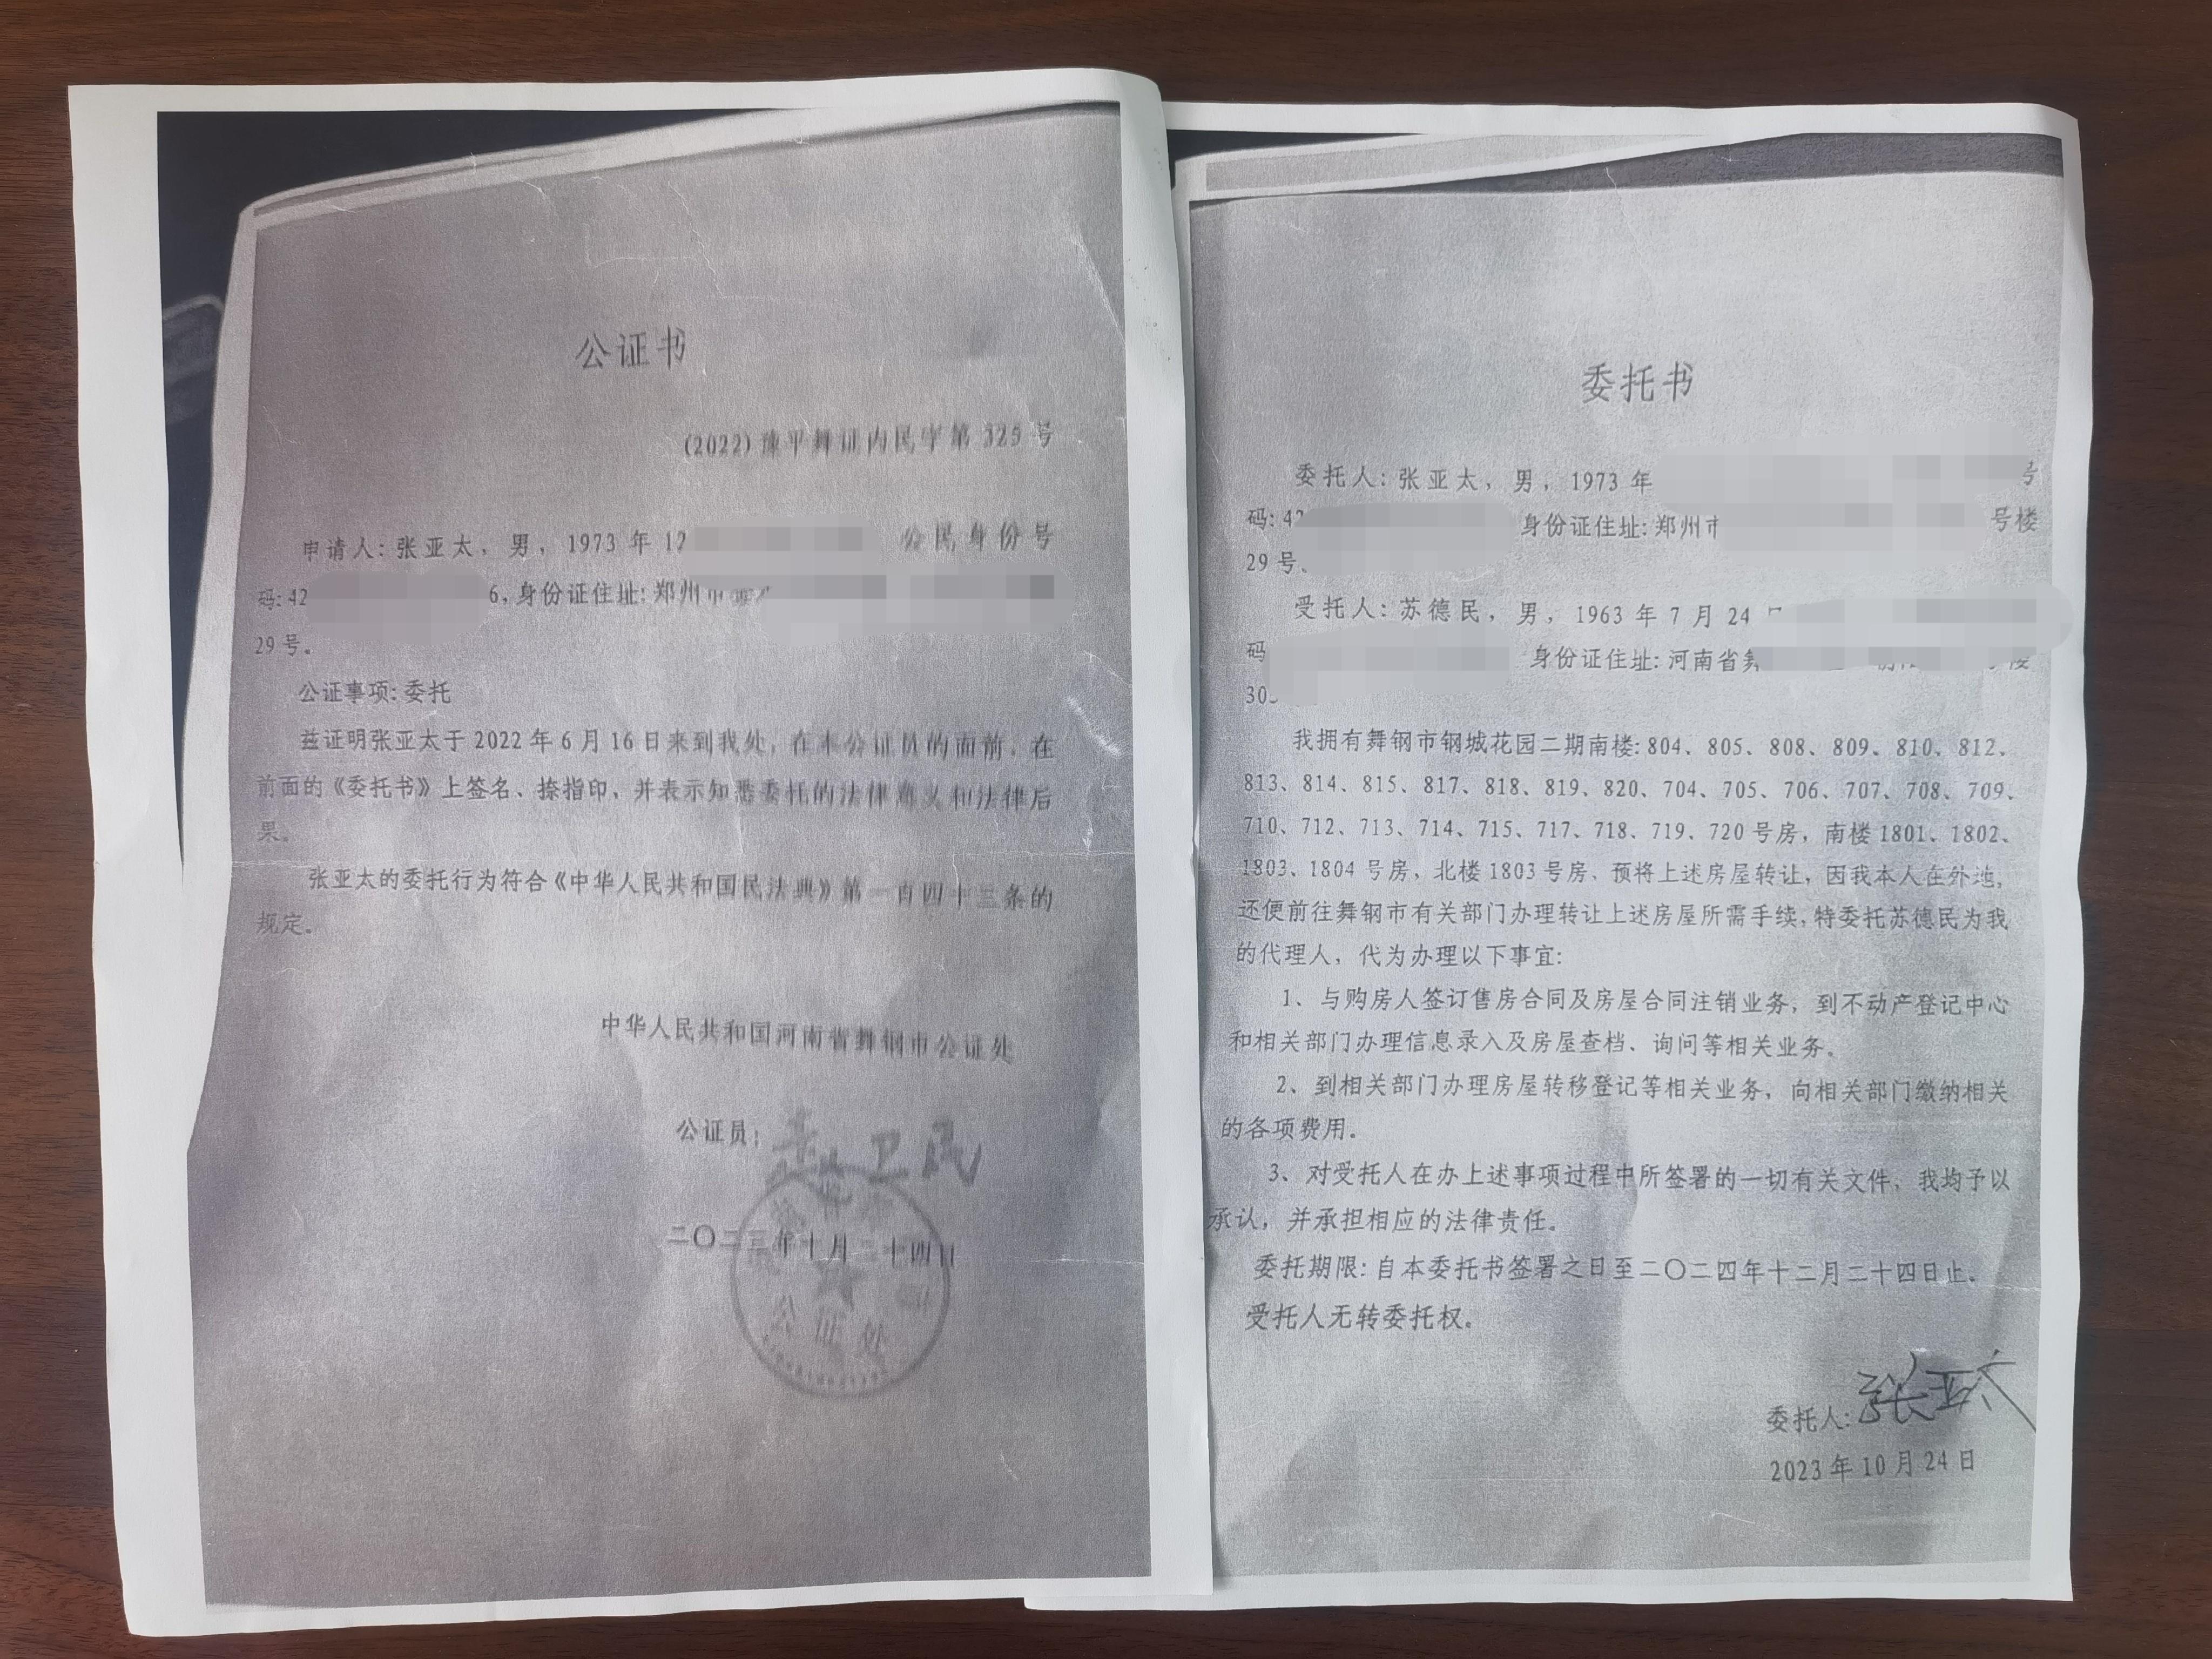 公证书
(2022)豫平舞证内民字第325号
申请人:张亚太,男,1973年12
公民身份号
码:42
6,身份证住址:郑州市
29号。
公证事项:委托
兹证明张亚太于2022年6月16日来到我处,在本公证员的面前,在
前面的《委托书》上签名、捺指印,并表示知悉委托的法律意义和法律后
果。
张亚太的委托行为符合《中华人民共和国民法典》第一百四十三条的
规定。
中华人民共和国河南省舞钢市公证处
公证员:
卫民
二〇二三年十月二十四日
公证处
委托书
委托人:张亚太,男,1973年
号
码:42
身份证住址:郑州市
号楼
29号。
受托人:苏德民,男,1963年7月24
码
身份证住址:河南省舞
楼
30
我拥有舞钢市钢城花园二期南楼:804、805、808、809、810、812、
813、814、815、817、818、819、820、704、705、706、707、708、709、
710、712、713、714、715、717、718、719、720号房,南楼1801、1802、
1803、1804号房,北楼1803号房、预将上述房屋转让,因我本人在外地,
还便前往舞钢市有关部门办理转让上述房屋所需手续,特委托苏德民为我
的代理人,代为办理以下事宜:
1、与购房人签订售房合同及房屋合同注销业务,到不动产登记中心
和相关部门办理信息录入及房屋查档、询问等相关业务。
2、到相关部门办理房屋转移登记等相关业务,向相关部门缴纳相关
的各项费用。
3、对受托人在办上述事项过程中所签署的一切有关文件,我均予以
承认,并承担相应的法律责任。
委托期限:自本委托书签署之日至二〇二四年十二月二十四日止。
受托人无转委托权。
委托人:张亚太
2023年10月24日